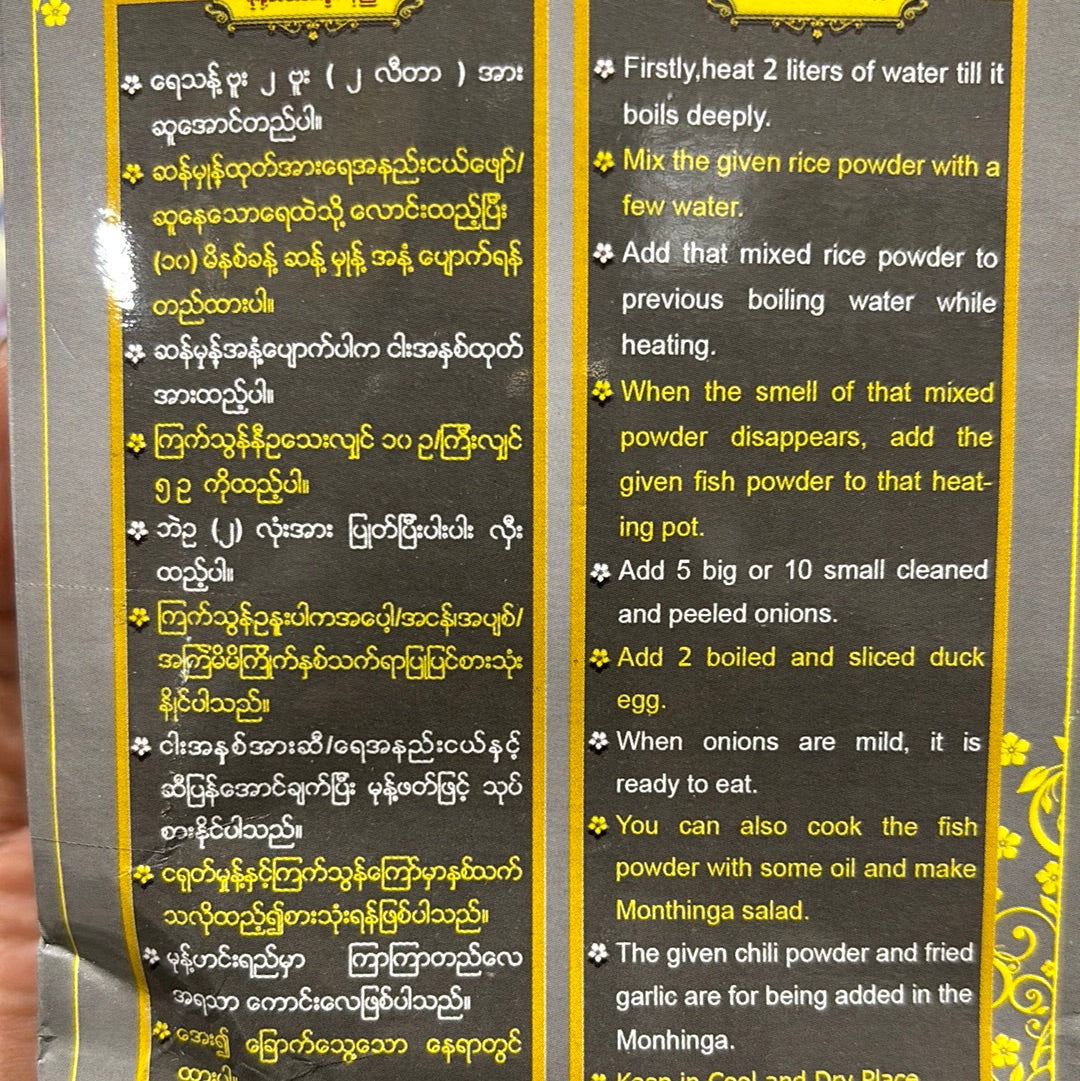 ရေသန့် ဗူး ၂ ဗူး ( ၂ လီတာ ) အား
ဆူအောင်တည်ပါ။
ဆန်မှုန့်ထုတ်အားရေအနည်းငယ်ဖျော်/
ဆူနေသောရေထဲသို့ လောင်းထည့်ပြီး
(၁၀) မိနစ်ခန့် ဆန် မှုန့် အနံ့ ပျောက်ရန်
တည်ထားပါ။
ဆန်မှုန့်အနံ့ပျောက်ပါက ငါးအနှစ်ထုတ်
အားထည့်ပါ။
ကြက်သွန်နီဥသေးလျှင် ၁၀ ဥ/ကြီးလျှင်
၅ ဥ ကိုထည့်ပါ။
ဘဲဥ (၂) လုံးအား ပြုတ်ပြီးပါးပါး လှီး
ထည့်ပါ။
ကြက်သွန်ဥနူးပါကအပေါ့/အငန်၊အပျစ်/
အကြဲမိမိကြိုက်နှစ်သက်ရာပြုပြင်စားသုံး
နိုင်ပါသည်။
ငါးအနှစ်အားဆီ/ရေအနည်းငယ်နှင့်
ဆီပြန်အောင်ချက်ပြီး မုန့်ဖတ်ဖြင့် သုပ်
စားနိုင်ပါသည်။
ငရုတ်မှုန့်နှင့်ကြက်သွန်ကြော်မှာနှစ်သက်
သလိုထည့်၍စားသုံးရန်ဖြစ်ပါသည်။
မုန့်ဟင်းရည်မှာ ကြာကြာတည်လေ
အရသာ ကောင်းလေဖြစ်ပါသည်။
အေး၍ ခြောက်သွေ့သော နေရာတွင်
ထားပါ။
Firstly,heat 2 liters of water till it
boils deeply.
Mix the given rice powder with a
few water.
Add that mixed rice powder to
previous boiling water while
heating.
When the smell of that mixed
powder disappears, add the
given fish powder to that heat-
ing pot.
Add 5 big or 10 small cleaned
and peeled onions.
Add 2 boiled and sliced duck
egg.
When onions are mild, it is
ready to eat.
You can also cook the fish
powder with some oil and make
Monthinga salad.
The given chili powder and fried
garlic are for being added in the
Monhinga.
Keep in Cool and Dry Place